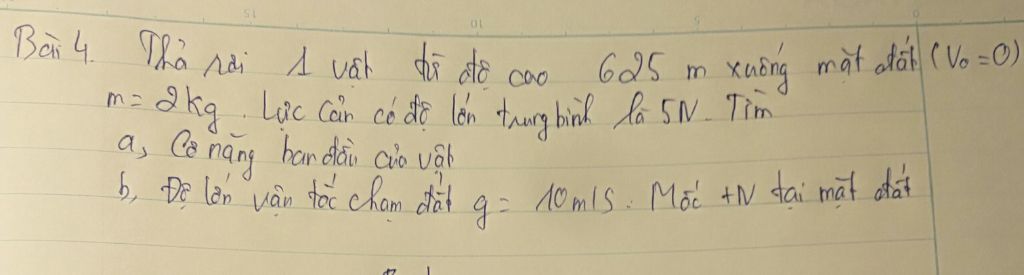 Bài 4. Thả rơi 1 vật từ độ cao 625 m xuống mặt đất (V₀ = 0)
m = 2kg. Lực cản có độ lớn trung bình là 5N. Tìm
a, Cơ năng ban đầu của vật
b, Độ lớn vận tốc chạm đất g = 10m/s. Mốc tN tại mặt đất